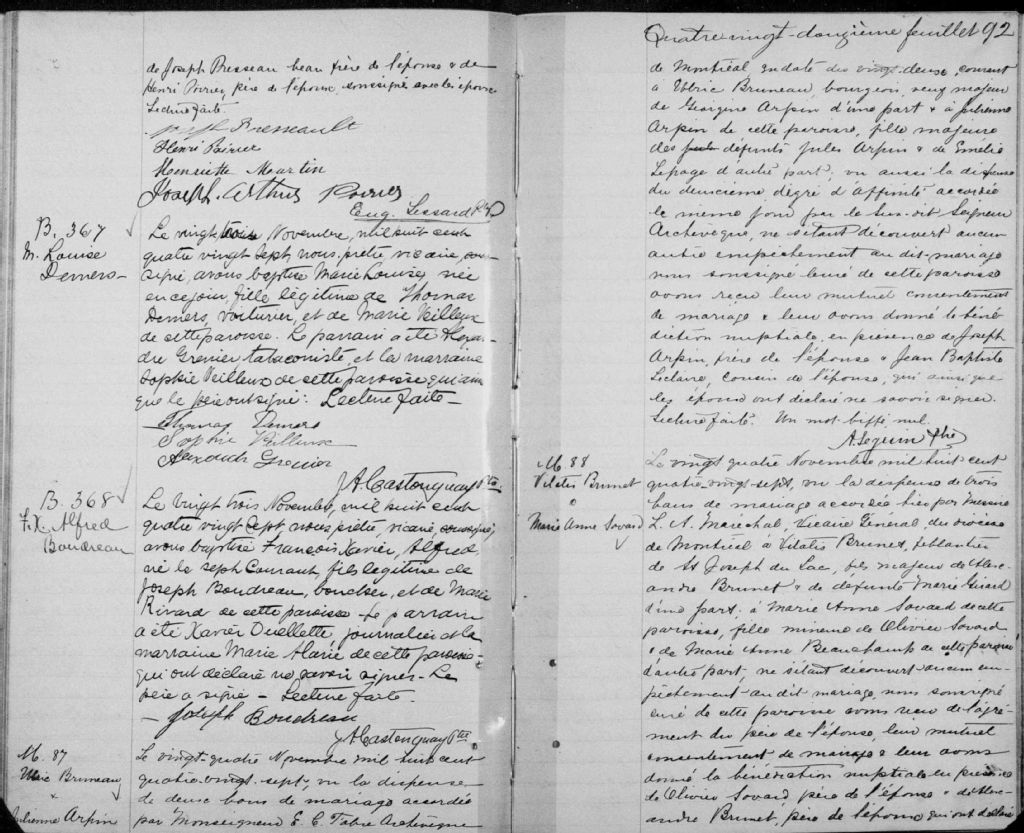 de Joseph Presseau beau frère de l'épouse & de
Henri Poirier, père de l'épouse, soussigné avec les époux
Lecture faite.
Joseph Presseault
Henri Poirier
Henriette Martin
Joseph Arthur Poirier
Eug. Lessard Ptre
B. 367
M. Louise
Demers
Le vingt trois Novembre, mil huit cent
quatre vingt sept, nous, prêtre, vicaire, sous-
signé, avons baptisé Marie Louise, née
en ce jour, fille légitime de Thomas
Demers, voiturier, et de Marie Veilleux
de cette paroisse. Le parrain a été Alexan-
dre Grenier tabaconiste, et la marraine
Sophie Veilleux de cette paroisse qui ainsi
que le père ont signé. Lecture faite
Thomas Demers
Sophie Veilleux
Alexandre Grenier
J A Castonguay Ptre
B. 368
F. X. Alfred
Boudreau
Le vingt trois Novembre, mil huit cent
quatre vingt sept, nous, prêtre, vicaire, soussigné,
avons baptisé François Xavier, Alfred,
né le sept Courant, fils légitime de
Joseph Boudreau, boucher, et de Marie
Rivard de cette paroisse. Le parrain
a été Xavier Ouellette, journalier et la
marraine Marie Alarie de cette paroisse
qui ont déclaré ne savoir signer. Le
père a signé - Lecture faite.
- Joseph Boudreau
J A Castonguay Ptre
M. 87
Ulric Bruneau
&
Julienne Arpin
Le vingt-quatre Novembre mil huit cent
quatre-vingt-sept, vu la dispense
de deux bans de mariage accordée
par Monseigneur E. C. Fabre Archevêque
Quatre vingt-douzième feuillet 92
de Montréal en date des vingt-deux courant
à Ulric Bruneau bourgeois, veuf majeur
de Georgine Arpin d'une part & à Julienne
Arpin de cette paroisse, fille majeure
des défunts Jules Arpin & de Emélie
Lepage d'autre part; vu aussi la dispense
du deuxième dégré d'affinité accordée
le même jour par le Sus-dit Seigneur
Archevêque, ne s'étant découvert aucun
autre empêchement au dit-mariage
nous soussigné curé de cette paroisse
avons reçu leur mutuel consentement
de mariage & leur avons donné la béné
diction nuptiale, en présence de Joseph
Arpin, frère de l'épouse & Jean Baptiste
Leclaire, cousin de l'épouse, qui ainsi que
les époux ont déclaré ne savoir signer.
Lecture faite. Un mot biffé nul.
A. Seguin Ptre
M 88
Vitalis Brunet
&
Marie Anne Sovard
Le vingt quatre Novembre mil huit cent
quatre-vingt-sept, vu la dispense de trois
bans de mariage accordée hier par Messire
L. A. Maréchal, Vicaire Général du diocèse
de Montréal à Vitalis Brunet, ferblantier
de St Joseph du Lac, fils majeur de Alex-
andre Brunet & de défunte Marie Girard
d'une part; à Marie Anne Sovard de cette
paroisse, fille mineure de Olivier Sovard
& de Marie Anne Beauchamp de cette paroisse
d'autre part, ne s'étant découvert aucun em-
pêchement au dit mariage, nous soussigné
curé de cette paroisse avons reçu de l'agré-
ment du père de l'épouse, leur mutuel
consentement de mariage & leur avons
donné la bénédiction nuptiale en présence
de Olivier Sovard père de l'épouse & d'Alex-
andre Brunet, père de l'époux qui ont déclaré